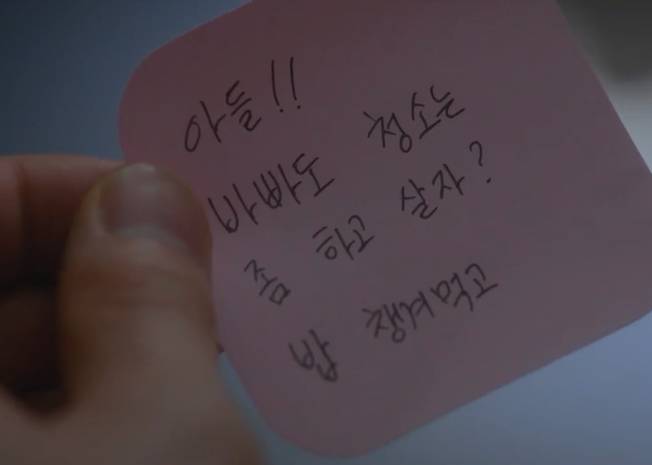 아들!!
바빠도 청소는
좀 하고 살자?
밥 챙겨먹고